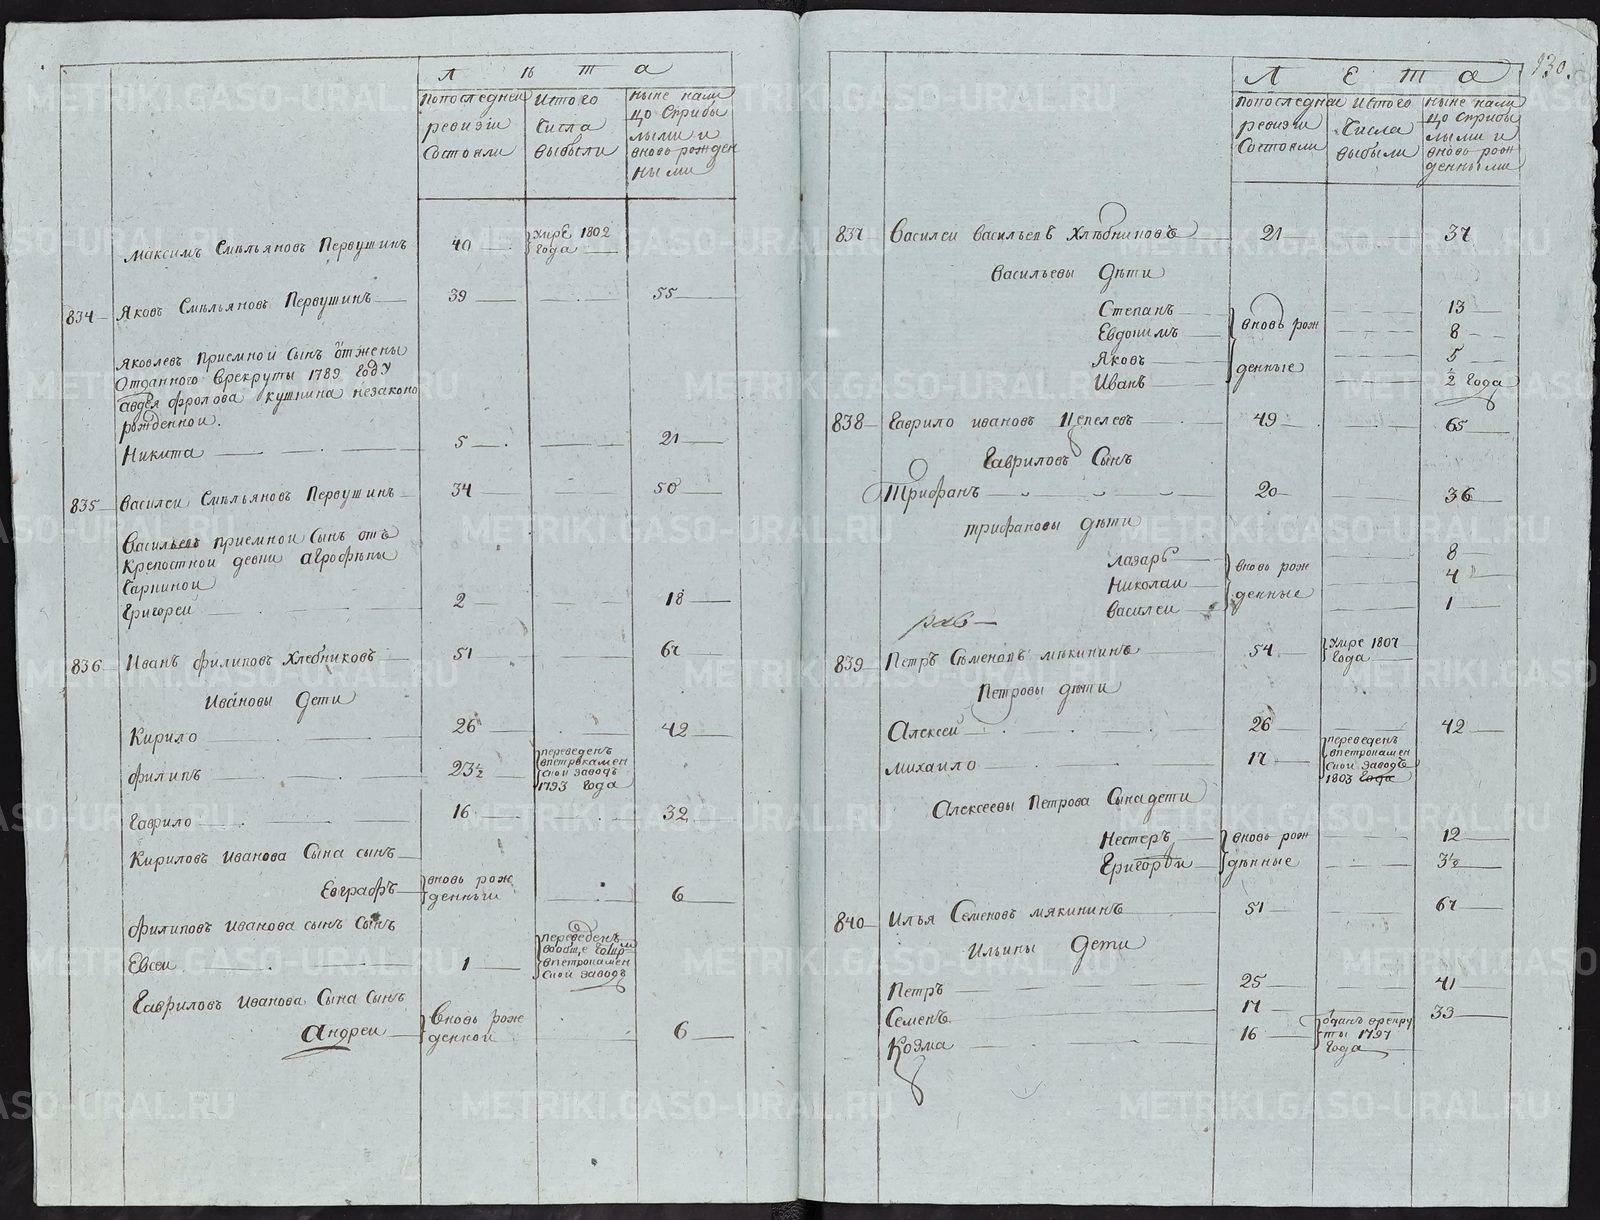 Л ѣ т а
попоследнеи ревизiи состояли
итого числа выбыли
ныне налицо сприбылыми и вновь рожденными
Максимъ Емельяновъ Первушинъ 40 умре 1802 года
834 Яковъ Емельяновъ Первушинъ 39 55
Яковлевъ приемнои сынъ отжены
отданного врекруты 1789 году
авдея фролова кушнина незаконо
рожденнои.
Никита 5 21
835 Василеи Емельяновъ Первушинъ 34 50
Васильевъ приемнои сынъ отъ
крепостнои девки агрофѣны
Григореи 2 18
836 Иванъ филиповъ Хлебниковъ 51 67
Ивановы дети
Кирило 26 42
филипъ 23½ переведенъ впетрокаменскои заводъ 1793 года
Гаврило 16 32
Кириловъ Иванова сына сынъ
Евграфъ вновь рожденныи 6
филиповъ Иванова сынъ сынъ
Евсеи 1 переведенъ впетрокаменскои заводъ
Гавриловъ Иванова сына сынъ
Андреи вновь рожденнои 6
130.
Л е т а
попоследнеи ревизiи состояли
итого числа выбыли
ныне налицо сприбылыми и вновь рожденными
837 Василеи Васильевъ Хлѣбниковъ 21 37
Васильевы дѣти
Степанъ 13
Евдокимъ вновь рож 8
Яковъ денные 5
Иванъ ½ года
838 Гаврило ивановъ Пепелевъ 49 65
Гавриловъ сынъ
Трифанъ 20 36
трифановы дѣти
Лазарь вновь рож 8
Николаи денные 4
Василеи 1
раб
839 Петръ Семеновъ мякининъ 54 умре 1807 года
Петровы дѣти
Алексеи 26 42
михаило 17 переведенъ впетрокаменскои заводъ 1803 года
Алексеевы Петрова сына дети
Нестеръ вновь рож 12
Григореи дѣнные 3½
840 Илья Семеновъ мякининъ 51 67
Ильины дети
Петръ 25 41
Семенъ 17 33
Козма 16 отданъ врекруты 1797 года
METRIKI.GASO-URAL.RU